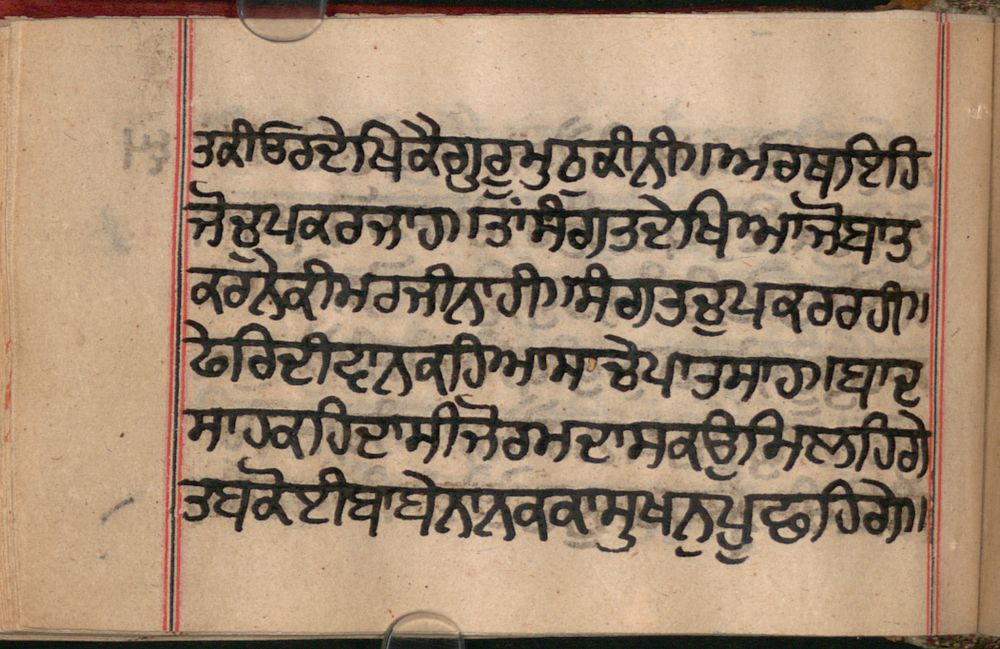 ਤਕੀਓਰਦੇਖਿਕੈਗੁਰੂਮੁਠਕੀਨੀ॥ਅਰਥਾਇਹਿ
ਜੋਚੁਪਕਰਜਾਹ॥ਤਾਂਸੰਗਤਦੇਖਿਆਜੋਬਾਤ
ਕਰਨੇਕੀਮਰਜੀਨਾਹੀ॥ਸੰਗਤਚੁਪਕਰਰਹੀ॥
ਫੇਰਿਦੀਵਾਨਕਹਿਆਸਚੇਪਾਤਸਾਹ॥ਬਾਦ
ਸਾਹਕਹਿਦਾਸੀਜੋਰਮਦਾਸਕਉਮਿਲਹਿਗੇ
ਤਬਕੋਈਬਾਬੇਨਾਨਕਕਾਸੁਖਨੁਪੂਛਹਿਗੇ॥